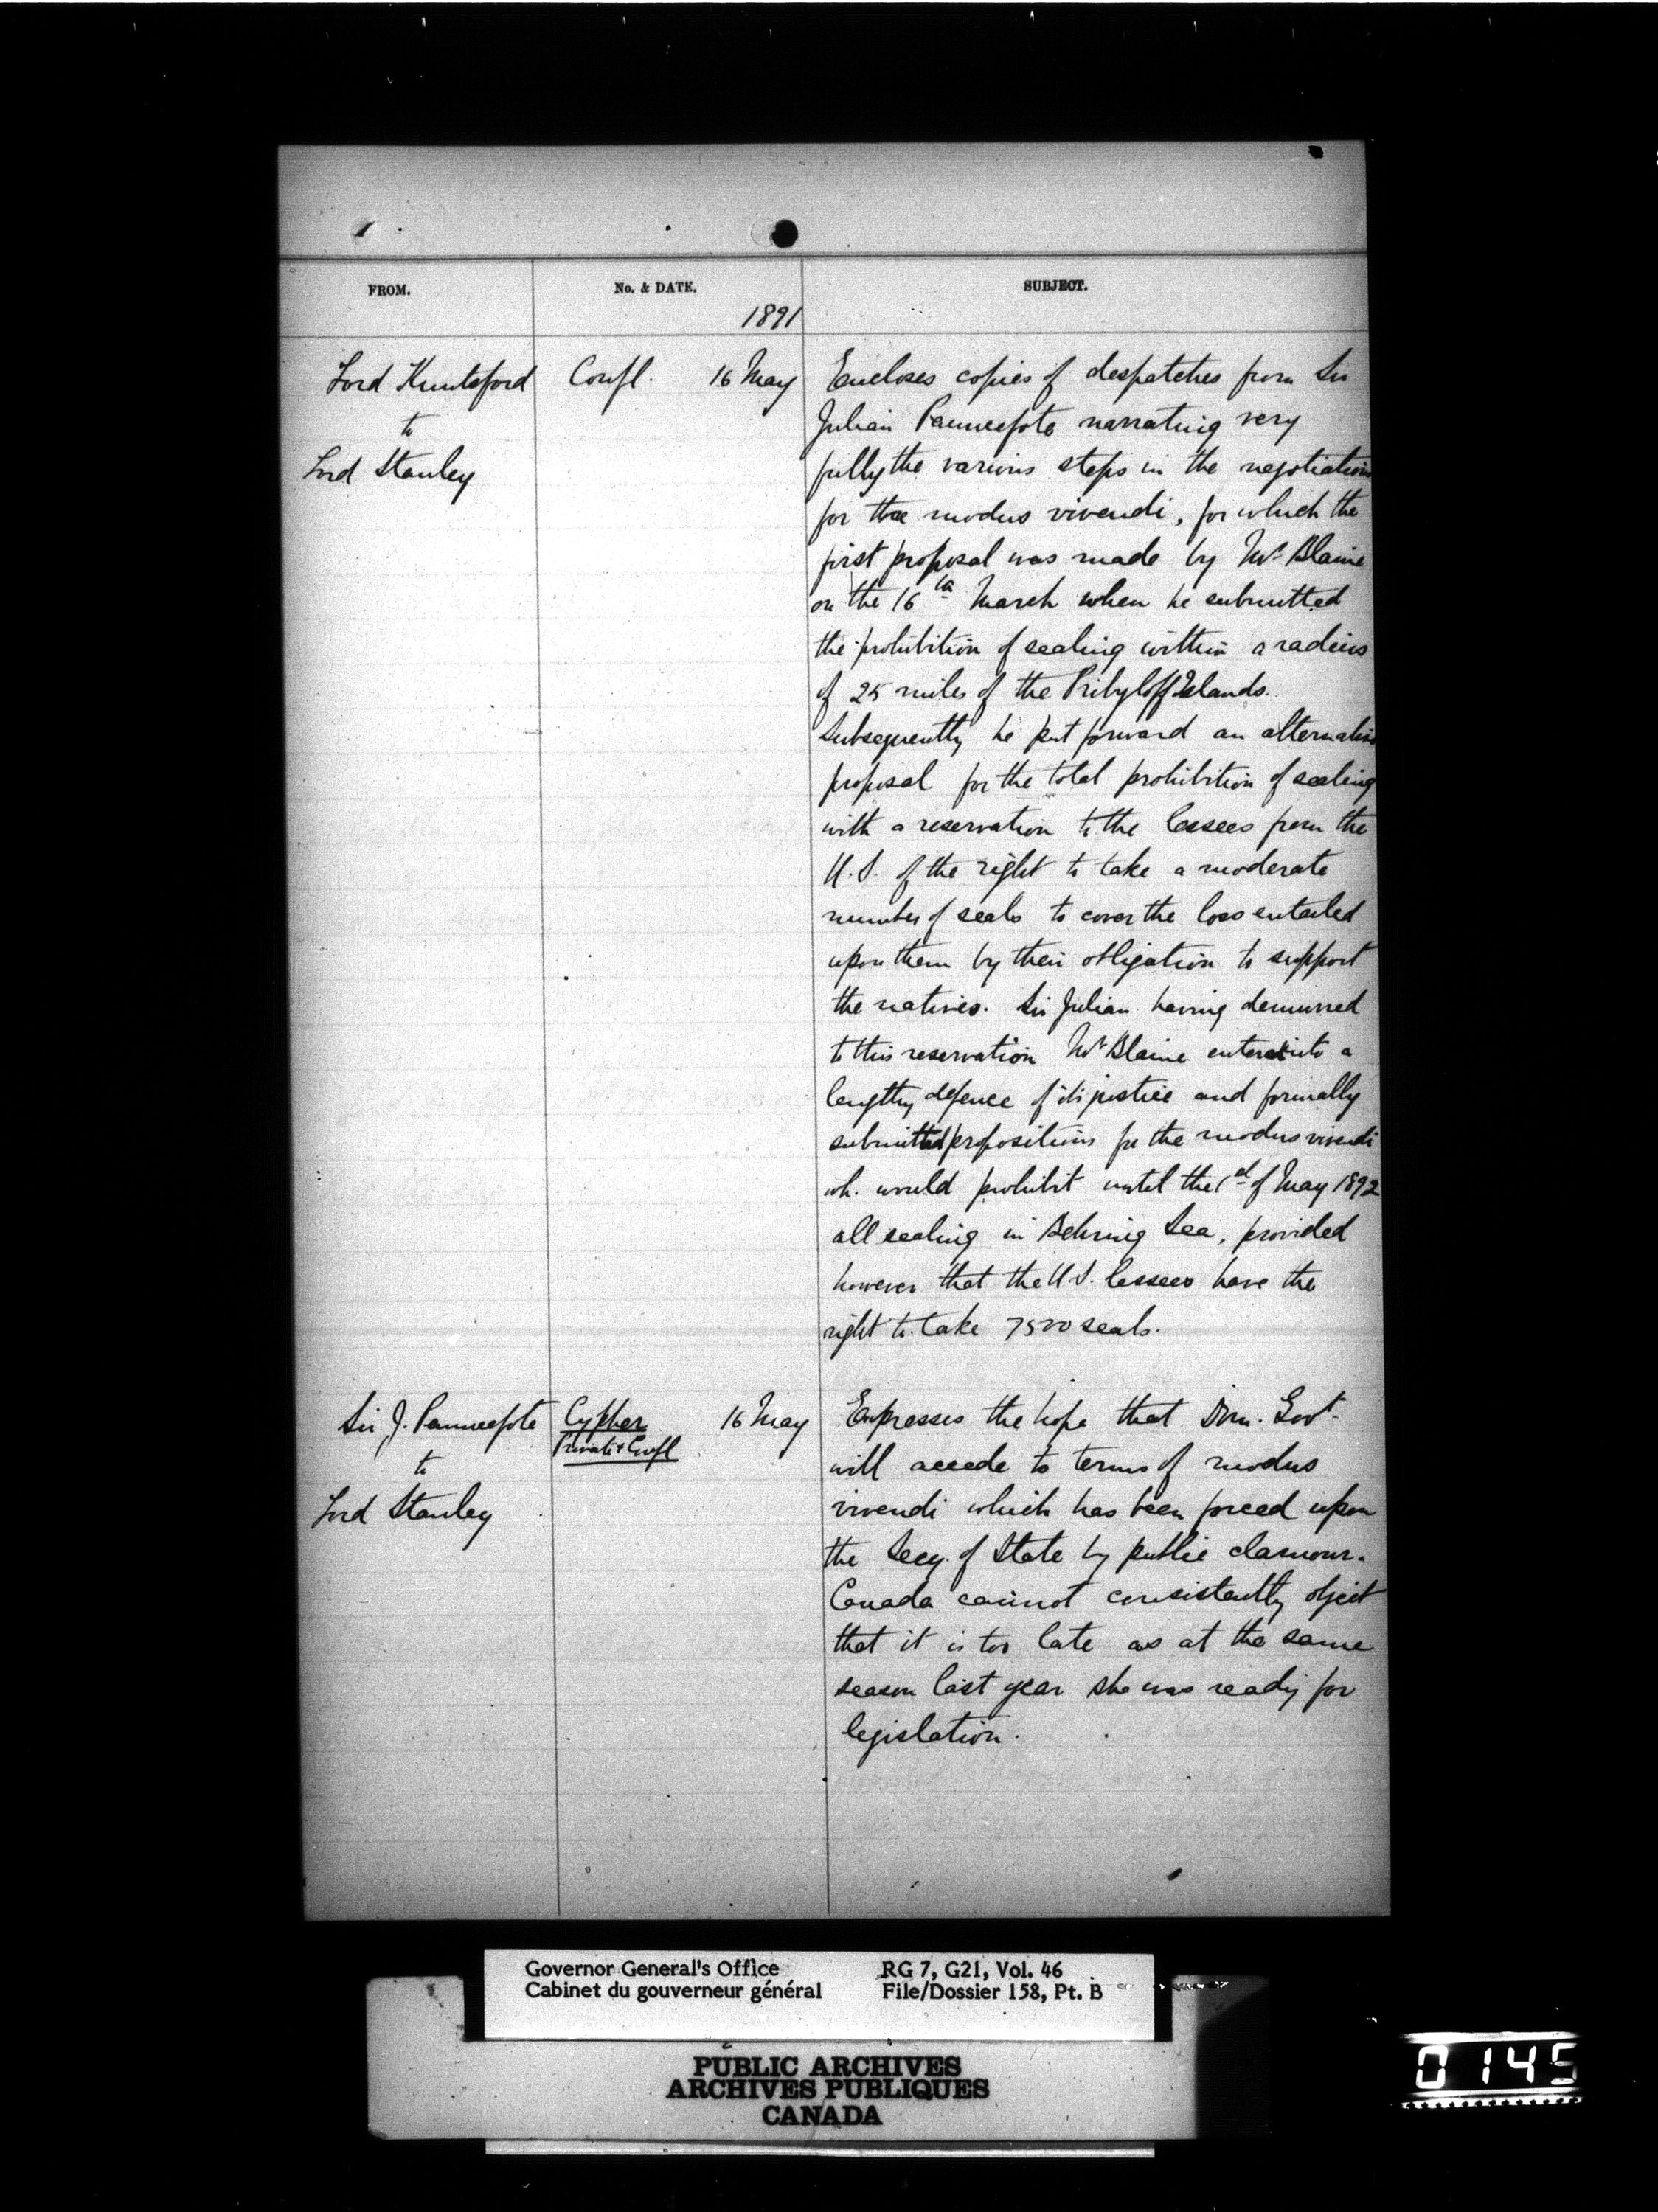 FROM. No. & DATE. SUBJECT.
1891
Lord Knutsford Confl. 16 May Encloses copies of despatches from Sir
to Julian Pauncefote narrating very
Lord Stanley fully the various steps in the negotiations
for the modus vivendi, for which the
first proposal was made by Mr Blaine
on the 16th March when he submitted
the prohibition of sealing within a radius
of 25 miles of the Pribyloff Islands.
Subsequently he put forward an alternative
proposal for the total prohibition of sealing
with a reservation to the lessees from the
U.S. of the right to take a moderate
number of seals to cover the loss entailed
upon them by their obligation to support
the natives. Sir Julian having demurred
to this reservation Mr Blaine entered into a
lengthy defence of its justice and formally
submitted propositions for the modus vivendi
wh. would prohibit until the 1st of May 1892
all sealing in Behring Sea, provided
however that the U.S. lessees have the
right to take 7500 seals.
Sir J. Pauncefote Cypher 16 May Expresses the hope that Dom. Govt.
Private & Confl
to will accede to terms of modus
Lord Stanley vivendi which has been forced upon
the Secy. of State by public clamour.
Canada cannot consistently object
that it is too late as at the same
season last year she was ready for
legislation.
Governor General's Office RG 7, G21, Vol. 46
Cabinet du gouverneur général File/Dossier 158, Pt. B
PUBLIC ARCHIVES
ARCHIVES PUBLIQUES
CANADA
0145